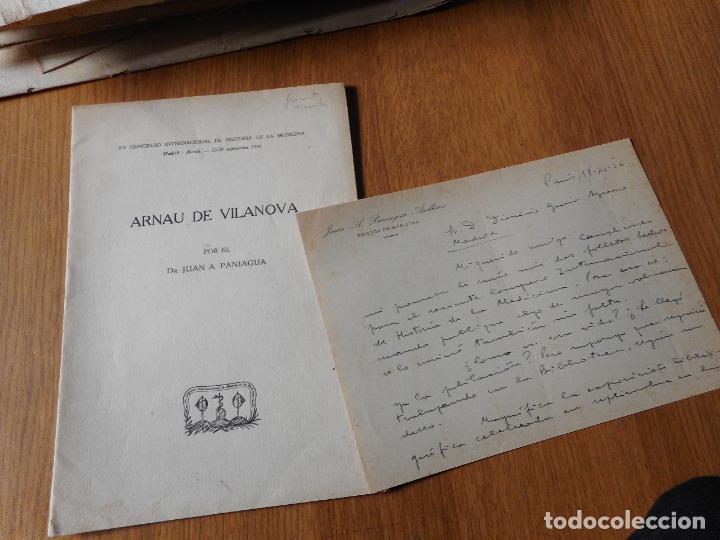 XV CONGRESO INTERNACIONAL DE HISTORIA DE LA MEDICINA
Madrid - Alcalá, — 22-29 septiembre 1956
ARNAU DE VILANOVA
POR EL
DR. JUAN A. PANIAGUA
Juan A. Paniagua Arellano
París, 18-XI-56
Sr. D. Dionisio
Madrid
Mi querido amigo: Cumpliendo
mi promesa le envío mis dos folletos hechos
para el reciente Congreso Internacional
de Historia de la Medicina. Para
cuando publique algo de mayor volumen
se lo enviaré también sin falta.
¿Cómo va su vida? ¿Le llegó
ya la jubilación? Pero supongo que seguirá
trabajando en la Biblioteca, según su
deseo.
Magnífica la exposición biblio-
gráfica celebrada en septiembre en la
todocoleccion.net